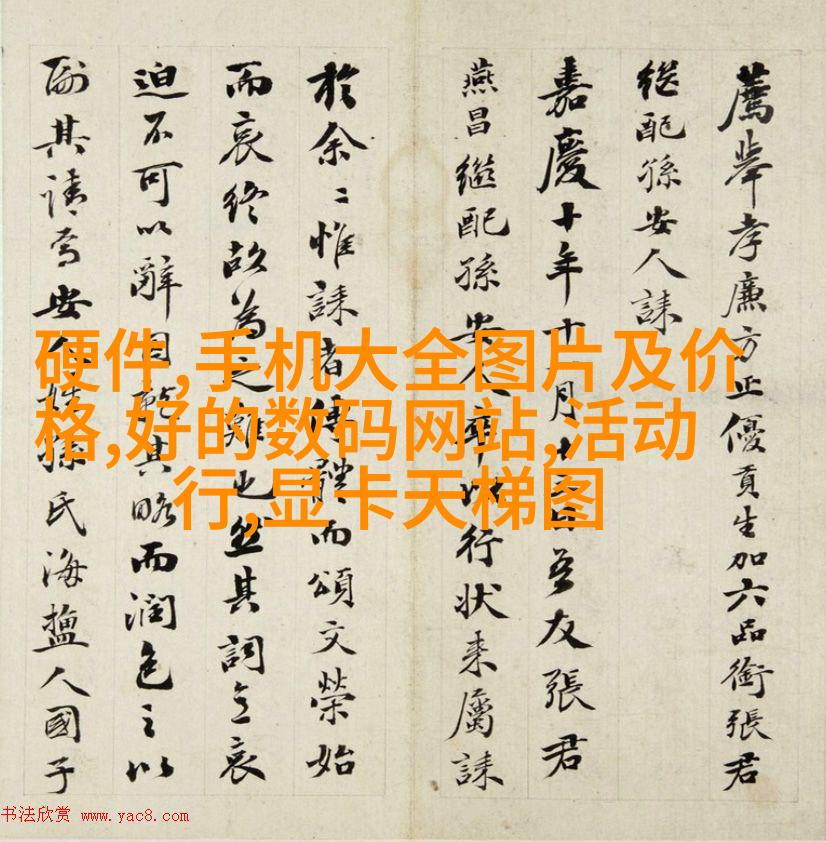 薦舉孝廉方正優貢生加六品銜張君
継配孫安人誄
嘉慶十年十一月十三日吾友張君
燕昌繼配孫安人卒以行狀来屬誄
於余〻惟誄者傳體而頌文榮始
而哀終故為之難也然其詞立哀
迫不可以辭因甄其略而潤色之以
副其請焉安人姓孫氏海鹽人國子
硬件,手机大全图片及价
格,好的数码网站,活动
行,显卡天梯图
书法欣赏 www.yac8.com